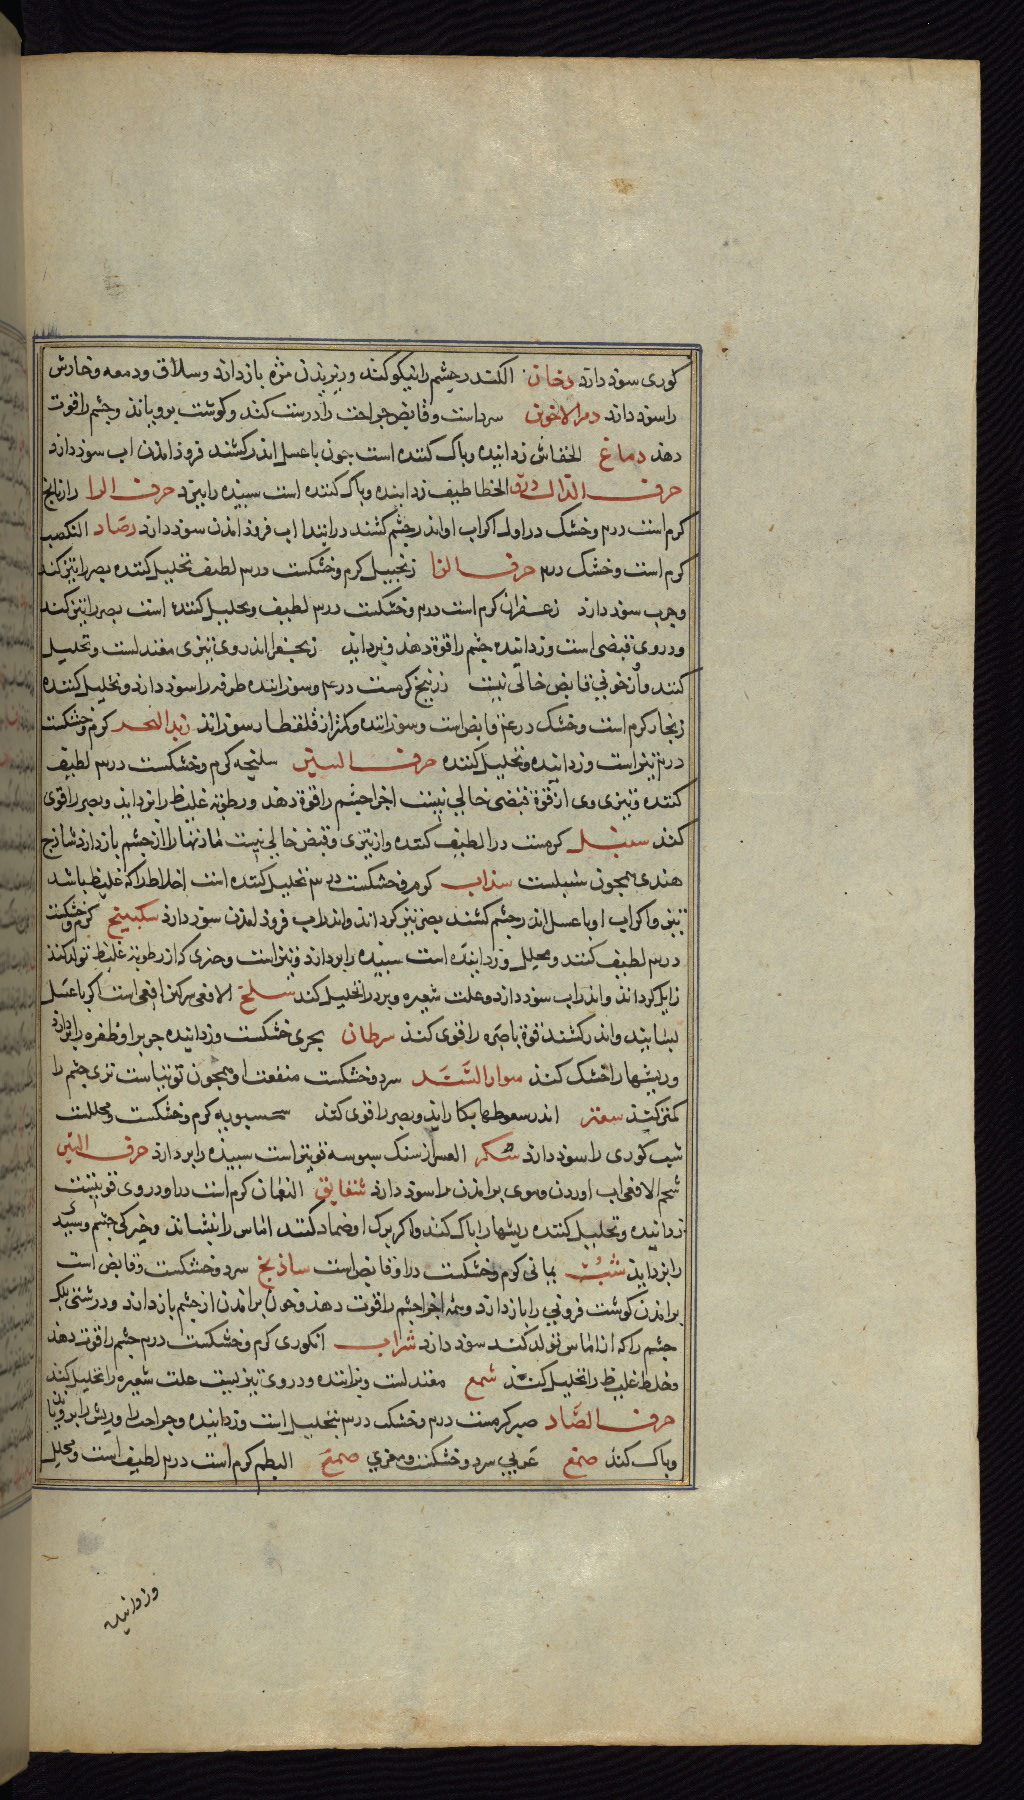 کوری سوذ دارد دخان الکندر چشم را نیکو کند وریزیذن مژه باز دارد وسلاق ودمعه وخارش
را سوذ دارد دم الاخوین سرد است وقابض جراحت را درست کند وکوشت برویاند وچشم را قوت
دهذ دماغ الخفاش زداینده وپاک کننده است جون با عسل اندر کشند فروذ امذن اب سوذ دارد
حرف الذال ذرق الخطاطیف زداینده وپاک کننده است سبیذه را ببرد حرف الرا رازیانج
کرم است درم وخشک در اول اکر اب او اندر چشم کشند در ابتدا اب فروذ امذن سوذ دارد رصاد
کرم است وخشک درم حرف الزا زنجبیل کرم وخشکست درم لطیف تحلیل کننده بصر را تیز کند
وجرب سوذ دارد زعفران کرم است درم وخشکست درم لطیف وتحلیل کننده است بصر را تیز کند
ودروی قبضی است وزداینده چشم را قوة دهذ وبزداید زنجفر اندروی تیزی معتدلست وتحلیل
کنند واز خونی قابض خالی نیست زرنیخ کرمست درم وسوزاننده طرفه را سوذ دارد وتحلیل کننده
زنجار کرم است وخشک درم قابض است وسوزاننده وکمتر از قلقطار سوزاند زبد البحر کرم وخشکست
درم تیز است وزداینده وتحلیل کننده حرف السین سلیخه کرم وخشکست درم لطیف
کننده وتیزی وی از قوة قبضی خالی نیست اجزا چشم را قوة دهذ ورطوبة غلیظ را بزداید وبصر را قوی
کند سنبل کرمست در الطیف کننده واز تیزی وقبض خالی نیست مادتها را از چشم باز دارد شاذج
هندی همجون سنبلست سذاب کرم وخشکست درم تحلیل کننده است اخلاط را که غلیظ باشد
تیز واکر اب او با عسل اندر چشم کشند بصر تیز کرداند واندر اب فروذ امذن سوذ دارد سکبینج کرم وخشکست
درم لطیف کنند ومحلل وزداینده است سبیذه را ببرد دارد وتیز است وچیزی که از رطوبة غلیظ تولد کند
زایل کرداند واندر اب سوذ دارد وعلت شعیره وبرد را تحلیل کند سلخ الافعی است اکر با عسل
بسایند واندر کشند قوة باصره را قوی کند سرطان بحری خشکست وزداینده جرب را وظفره را بزداید
وریشها را خشک کند سوار السند سرد وخشکست منفعت او همجون توتیاست تری چشم را
کمتر کند سعتر اندر سعوطها بکار اید وبصر را قوی کند سیسبویه کرم وخشکست ومحللست
شب کوری را سوذ دارد سکر العسر از سنک سبوسه تیز است سبیذه را ببرد دارد حرف الشین
شحم الافعی اب اوردن وموی برامذن را سوذ دارد شقایق النعمان کرم است درا ودروی قوتیست
زداینده وتحلیل کننده ریشها را پاک کند واکر برک او ضماد کنند اماس را بنشاند وخیرکی چشم وسبید
را بزداید شب یمانی کرم وخشکست درا وقابض است ساذنج سرد وخشکست وقابض است
برامذن کوشت فزونی را باز دارد وهمه اجزا چشم را قوت دهذ وخون برامذن از چشم باز دارد ودرشتی پلک
چشم را که از اماس تولد کند سوذ دارد شراب انکوری کرم وخشکست درم چشم را قوت دهذ
وخلط غلیظ را تحلیل کند شمع معتدلست وبزاننده ودروی تیز نیست علت شعیره را تحلیل کند
حرف الصاد صبر کرمست درم وخشک درم تحلیل است وزداینده وجراحت را وریش را برویاند
وپاک کند صمغ عربی سرد وخشکست ومغری صمغ البطم کرم است درم لطیف است ومحلل
وزداینده